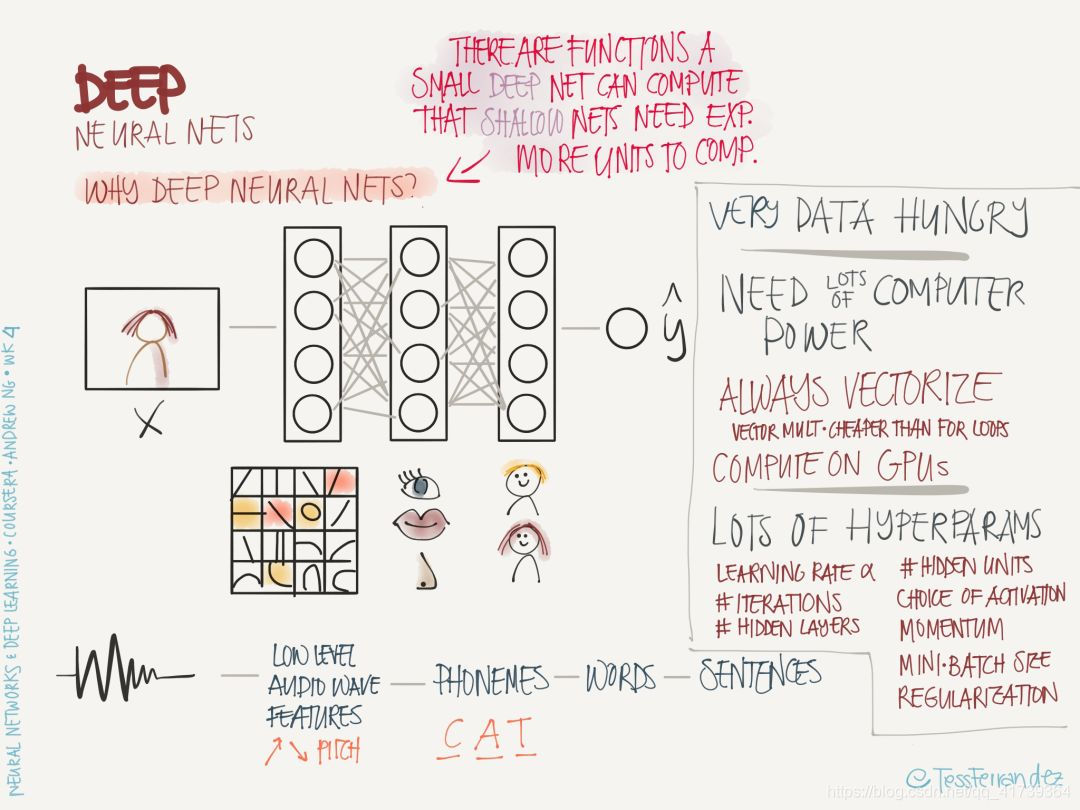 DEEP
NEURAL NETS
WHY DEEP NEURAL NETS?
THERE ARE FUNCTIONS A
SMALL DEEP NET CAN COMPUTE
THAT SHALLOW NETS NEED EXP.
MORE UNITS TO COMP.
X
ŷ
VERY DATA HUNGRY
NEED LOTS OF COMPUTER
POWER
ALWAYS VECTORIZE
VECTOR MULT. CHEAPER THAN FOR LOOPS
COMPUTE ON GPUs
LOTS OF HYPERPARAMS
LEARNING RATE α
# ITERATIONS
# HIDDEN LAYERS
# HIDDEN UNITS
CHOICE OF ACTIVATION
MOMENTUM
MINI-BATCH SIZE
REGULARIZATION
LOW LEVEL
AUDIO WAVE
FEATURES
↗↘ PITCH
PHONEMES
C A T
WORDS
SENTENCES
NEURAL NETWORKS & DEEP LEARNING • COURSERA • ANDREW NG • WK 4
@TessFerrandez
https://blog.csdn.net/qq_41739364